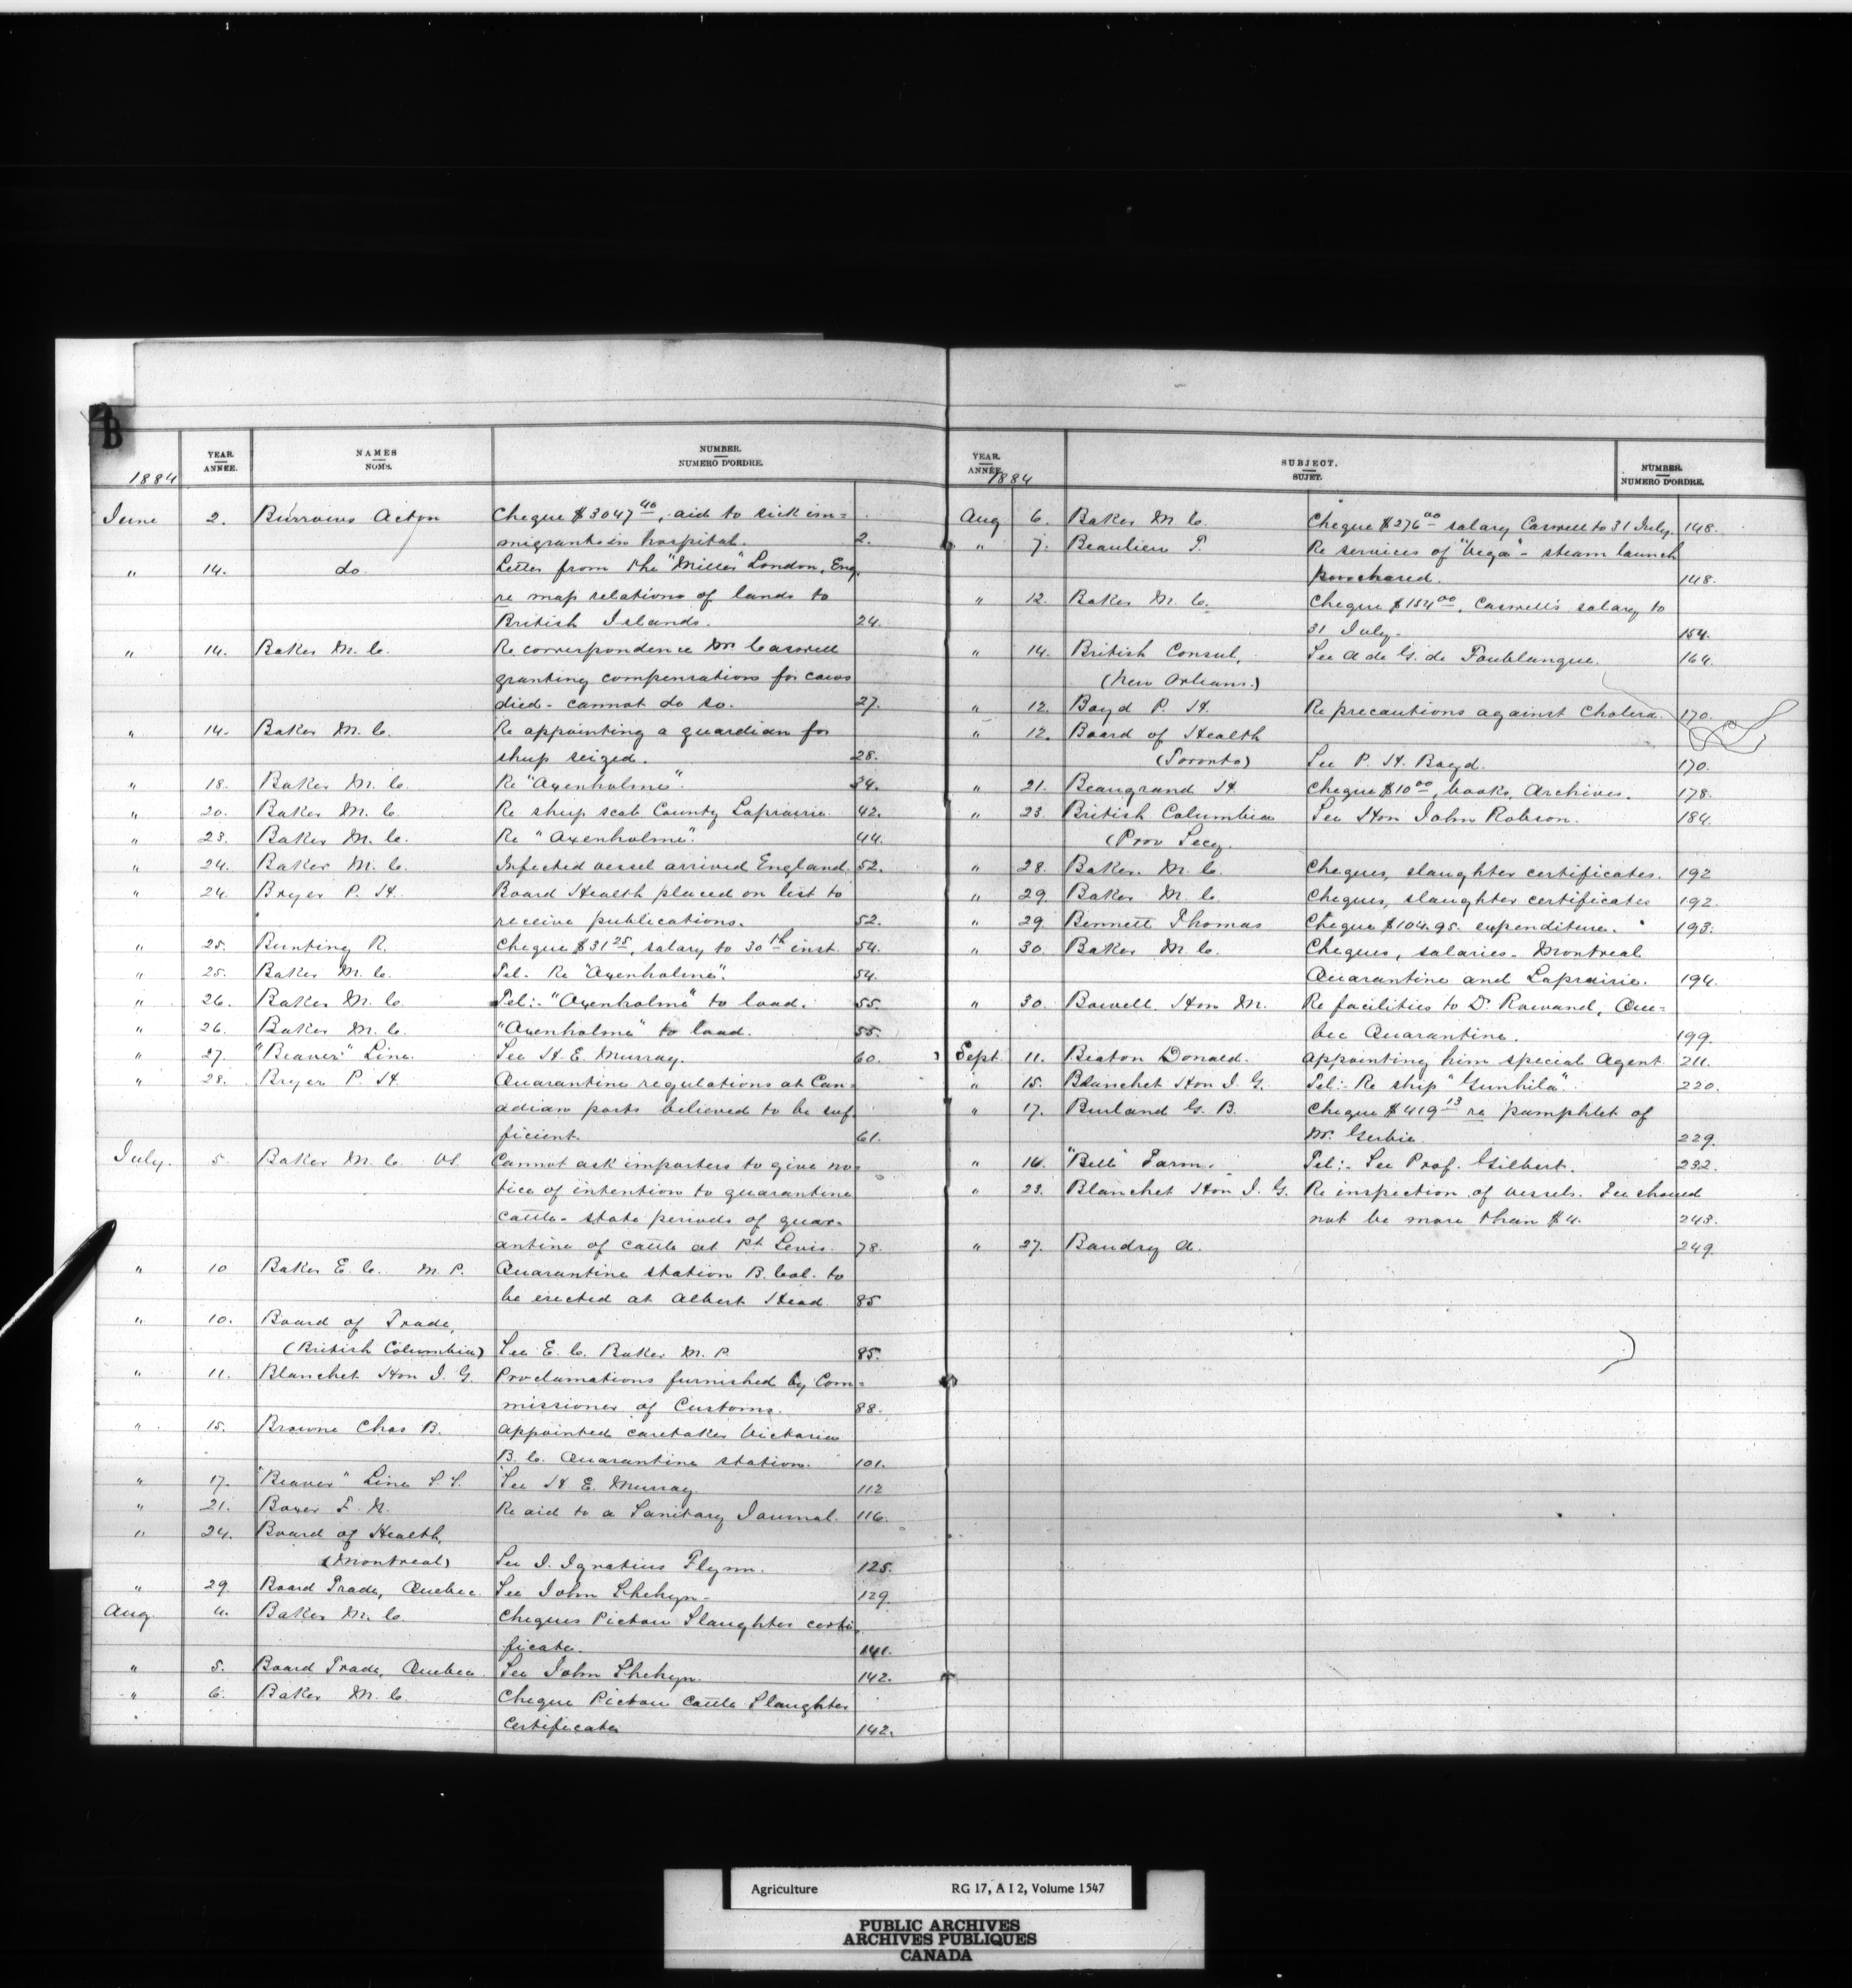 B
YEAR. ANNÉE. NAMES NOMS. NUMBER. NUMERO D'ORDRE.
1884
June 2. Burrows Acton Cheque $3047 40, aid to sick im=
migrants in hospital. 2.
" 14. do Letter from the "Miller" London, Eng.
re map relations of lands to
British Islands. 24.
" 14. Baker M. C. Re correspondence Mr Caswell
granting compensations for cows
died - cannot do so. 27.
" 14. Baker M. C. Re appointing a guardian for
sheep seized. 28.
" 18. Baker M. C. Re "Axenholme". 34.
" 20. Baker M. C. Re sheep scab County Laprairie. 42.
" 23. Baker M. C. Re "Axenholme". 44.
" 24. Baker M. C. Infected vessel arrived England. 52.
" 24. Bryer P. H. Board Health placed on list to
receive publications. 52.
" 25. Bunting R. Cheque $31 25, salary to 30th inst. 54.
" 25. Baker M. C. Tel. Re "Axenholme". 54.
" 26. Baker M. C. Tel:- "Axenholme" to load. 55.
" 26. Baker M. C. "Axenholme" to load. 55.
" 27. "Beaver" Line. See H. E. Murray. 60.
" 28. Bryer P. H. Quarantine regulations at Can=
adian ports believed to be suf=
ficient. 61.
July. 5. Baker M. C. VS. Cannot ask importers to give no=
tice of intention to quarantine
cattle - state periods of quar=
antine of cattle at Pt. Levis. 78.
" 10 Baker E. C. M. P. Quarantine station B. Col. to
be erected at Albert Head. 85
" 10. Board of Trade,
(British Columbia) See E. C. Baker M. P. 85.
" 11. Blanchet Hon J. G. Proclamations furnished by Com=
missioner of Customs. 88.
" 15. Browne Chas B. Appointed caretaker Victoria
B. C. Quarantine station. 101.
" 17. "Beaver" Line S. S. See H. E. Murray. 112
" 21. Boxer F. N. Re aid to a Sanitary Journal. 116.
" 24. Board of Health,
(Montreal) See J. Ignatius Flynn. 125.
" 29. Board Trade, Quebec. See John Shehyn. 129.
Aug. 4. Baker M. C. Cheques Pictou Slaughter certi=
ficate. 141.
" 5. Board Trade, Quebec. See John Shehyn. 142.
" 6. Baker M. C. Cheque Pictou Cattle Slaughter
Certificates 142.
YEAR. ANNÉE. SUBJECT. SUJET. NUMBER. NUMERO D'ORDRE.
1884
Aug 6. Baker M. C. Cheque $276 00 salary Caswell to 31 July. 148.
" 7. Beaulieu T. Re services of "Vega" - steam launch
purchased. 148.
" 12. Baker M. C. Cheque $154 00, Caswell's salary to
31 July. 154.
" 14. British Consul, See A de G. de Foublanque. 164.
(New Orleans.)
" 12. Boyd P. H. Re precautions against Cholera. 170.
" 12. Board of Health
(Toronto) See P. H. Boyd. 170.
" 21. Beaugrand H. Cheque $10 00, books, Archives. 178.
" 23. British Columbia See Hon John Robson. 184.
(Prov Secy.
" 28. Baker M. C. Cheques, slaughter certificates. 192
" 29. Baker M. C. Cheques, slaughter certificates 192.
" 29. Bennett Thomas Cheque $104.95. expenditure. 193.
" 30. Baker M. C. Cheques, salaries - Montreal
Quarantine and Laprairie. 194.
" 30. Bowell Hon M. Re facilities to Dr Rowand, Que=
bec Quarantine. 199.
Sept 11. Beaton Donald. Appointing him special Agent. 211.
" 15. Blanchet Hon J. G. Tel:- Re ship "Gunhild". 220.
" 17. Burland G. B. Cheque $419 13 re pamphlet of
Mr. Gerbie. 229.
" 16. "Bell" Farm. Tel:- See Prof. Gilbert. 232.
" 23. Blanchet Hon J. G. Re inspection of vessels. Fee should
not be more than $4. 243.
" 27. Baudry A. 249.
Agriculture RG 17, A I 2, Volume 1547
PUBLIC ARCHIVES
ARCHIVES PUBLIQUES
CANADA